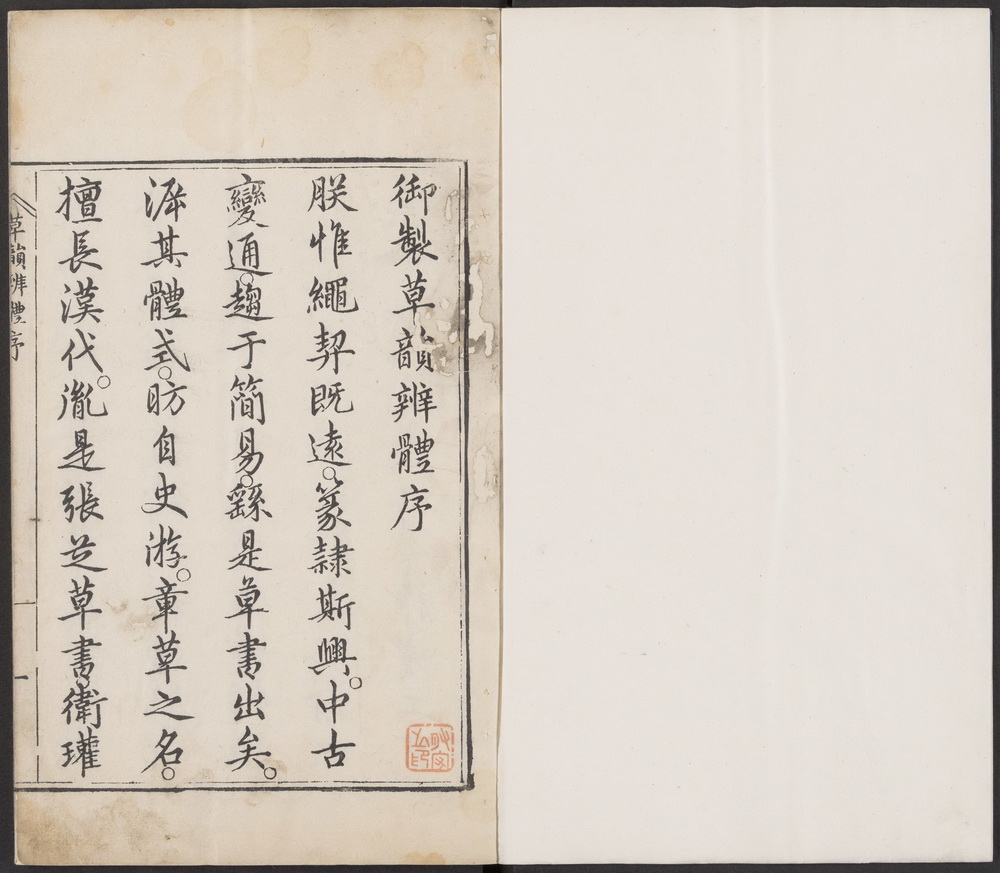 御製草韻辨體序
朕惟繩契既遠。篆隸斯興。中古
變通。趨于簡易。繇是草書出矣。
泝其體式。昉自史游。章草之名。
擅長漢代。胤是張芝草書。衛瓘
草韻辨體序 一